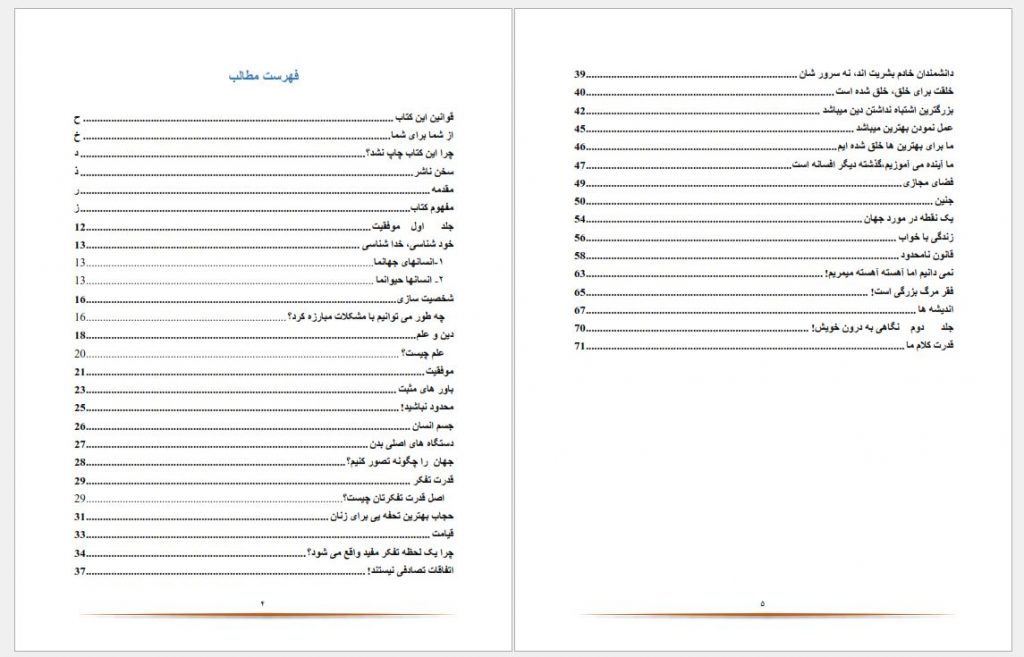 فهرست مطالب
قوانین این کتاب ................ ح
از شما برای شما................ خ
چرا این کتاب چاپ نشد؟................ د
سخن ناشر................ ذ
مقدمه ................ ر
مفهوم کتاب................ ز
جلد اول موفقیت................ 12
خود شناسی، خدا شناسی ................ 13
۱-انسانهای جهانما................ 13
۲- انسانها حیوانما ................ 13
شخصیت سازی................ 16
چه طور می توانیم با مشکلات مبارزه کرد؟................ 16
دین و علم................ 18
علم چیست؟ ................ 20
موفقیت................ 21
باور های مثبت ................ 23
محدود نباشید!................ 25
جسم انسان ................ 26
دستگاه های اصلی بدن ................ 27
جهان را چگونه تصور کنیم؟................ 28
قدرت تفکر ................ 29
اصل قدرت تفکرتان چیست؟................ 29
حجاب بهترین تحفه یی برای زنان ................ 31
قیامت ................ 33
چرا یک لحظه تفکر مفید واقع می شود؟................ 34
اتفاقات تصادفی نیستند! ................ 37
۴
دانشمندان خادم بشریت اند، نه سرور شان ................ 39
خلقت برای خلق، خلق شده است ................ 40
بزرگترین اشتباه نداشتن دین میباشد ................ 42
عمل نمودن بهترین میباشد ................ 45
ما برای بهترین ها خلق شده ایم................ 46
ما آینده می آموزیم،گذشته دیگر افسانه است................ 47
فضای مجازی ................ 49
جنین ................ 50
یک نقطه در مورد جهان ................ 54
زندگی با خواب ................ 56
قانون نامحدود ................ 58
نمی دانیم اما آهسته آهسته میمریم!................ 63
فقر مرگ بزرگی است! ................ 65
اندیشه ها ................ 67
جلد دوم نگاهی به درون خویش! ................ 70
قدرت کلام ما ................ 71
۵